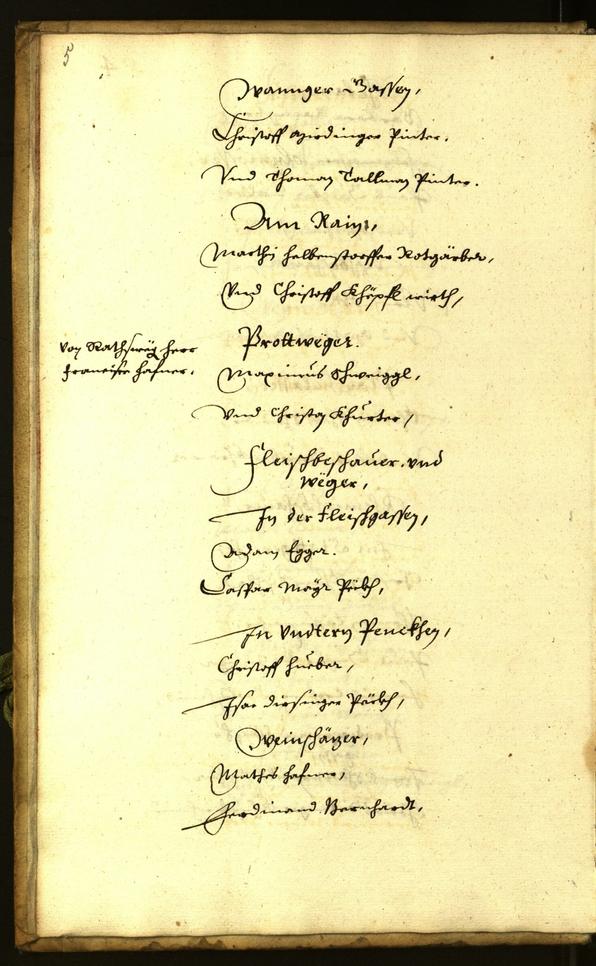 5
Wannger Gassen,
Christoff Hirdinger Pinter.
Vnd Thoman Tallman Pinter.
Am Rain,
Marthi Halbenstorffer Rotgärber,
Vnd Christoff Khöpfl wirth,
Prottweger.
Von Rathsweg herr
Francisce Hafner.
Maximus Schweiggl,
Vnd Christan Khurter,
Fleischbeschauer. vnd
weger,
In der Fleischgassen,
Adam Egger.
Caspar Mayr Pöckh,
In Vndtern Penckhen,
Christoff Hueber,
Isac Pöckh,
Weinschäzer,
Mathes Hafner,
Ferdinand Bernhardt,